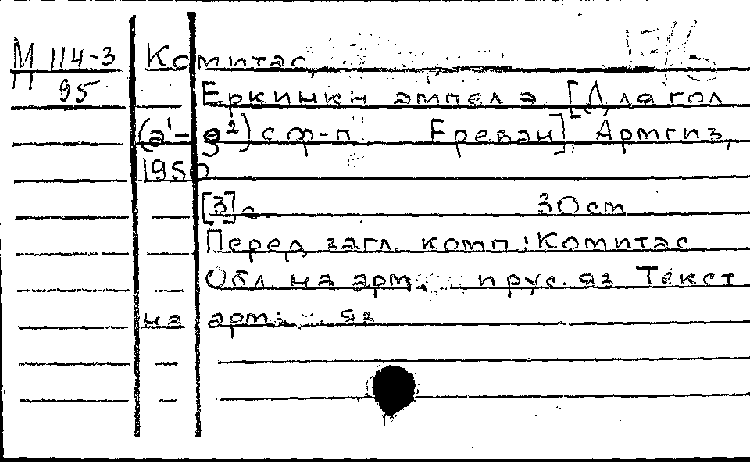 М 114-3
95
Комитас
Еркинкн ампел э [Для гол
(а¹-g²) с ф-п. Ереван] Армгиз,
1950
[3] с 30 cm
Перед загл. комп: Комитас
Обл. на арм. и рус. яз Текст
на арм. яз